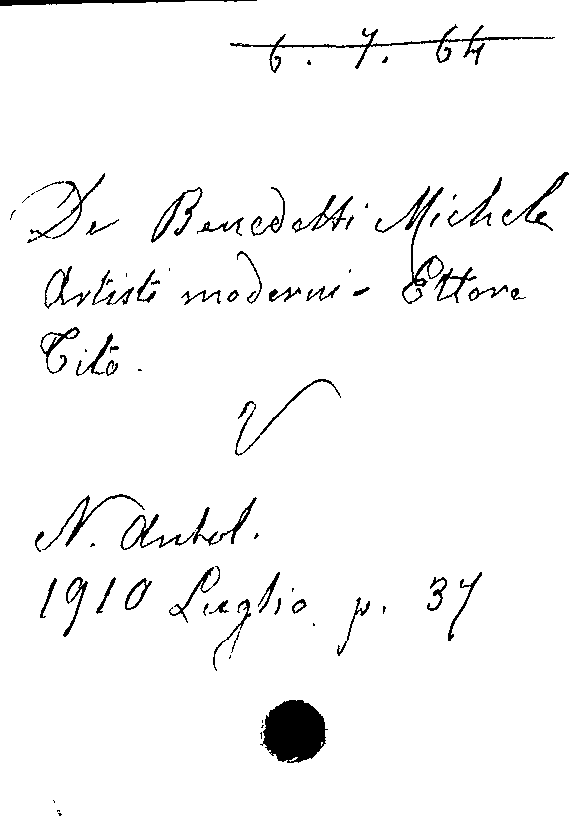 6. 7. 64
De Benedetti Michele
Artisti moderni - Ettore
Tito.
V
N. Antol.
1910 Luglio p. 37